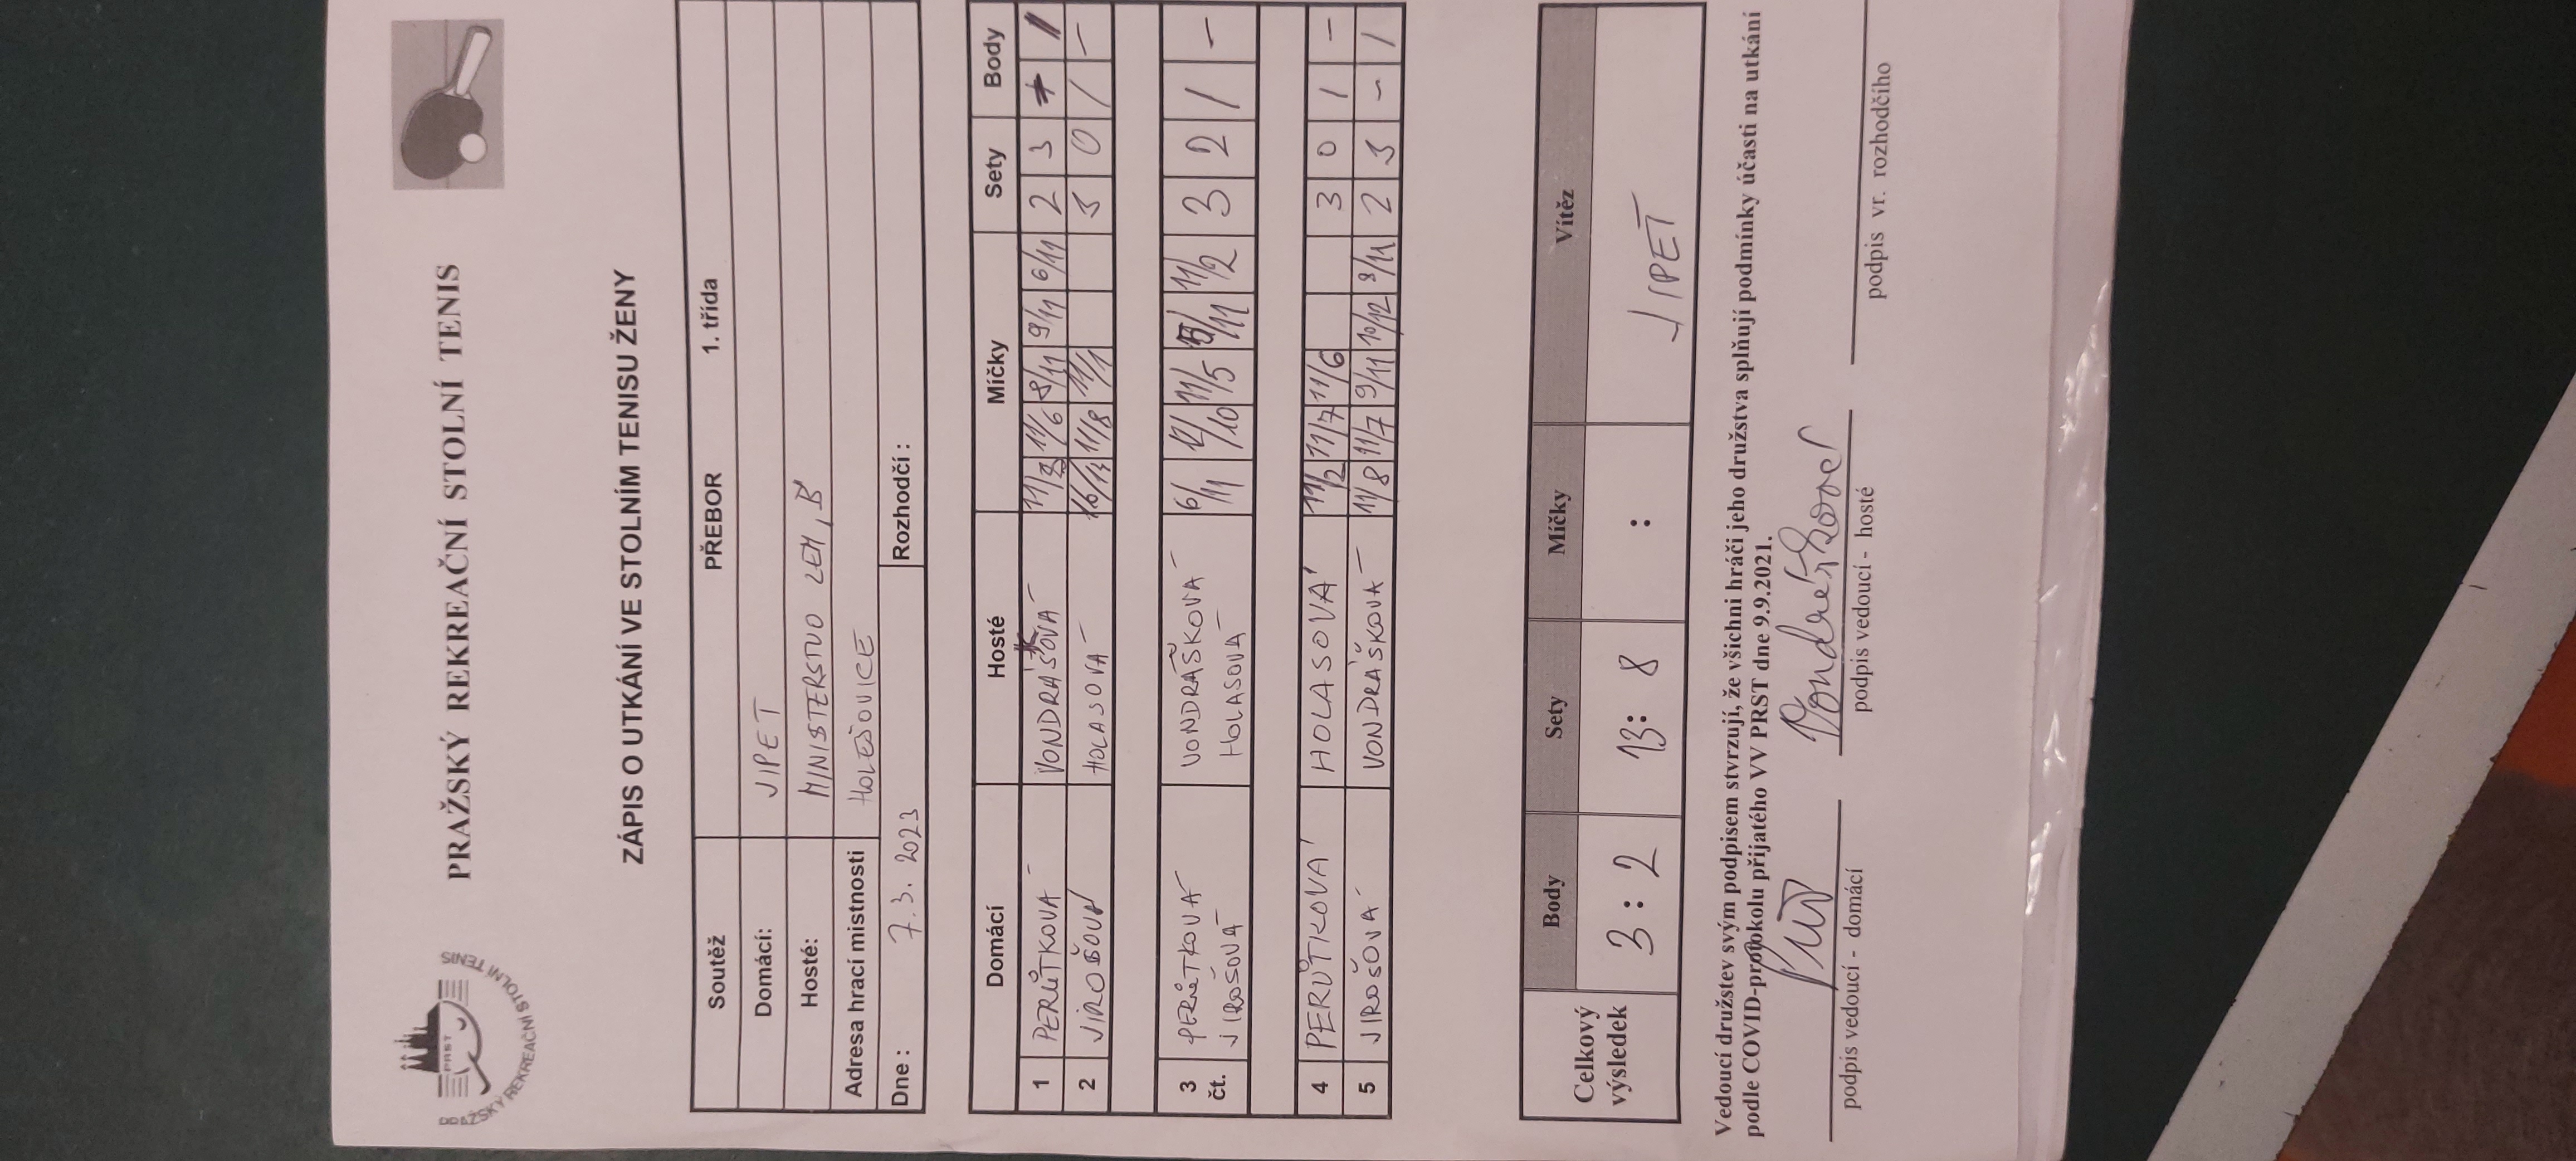 PRAŽSKÝ REKREAČNÍ STOLNÍ TENIS
PRST
PRAŽSKÝ REKREAČNÍ STOLNÍ TENIS
ZÁPIS O UTKÁNÍ VE STOLNÍM TENISU ŽENY
Soutěž PŘEBOR 1. třída
Domácí: JIPET
Hosté: MINISTERSTVO ZEM, B'
Adresa hrací mistnosti HOLEŠOVICE
Dne : 7.3. 2023 Rozhodčí :
Domácí Hosté Míčky Sety Body
1 PERŮTKOVÁ VONDRÁŠKOVÁ 11/8 11/6 8/11 9/11 6/11 2 3 - 1
2 JIROŠOVÁ HOLASOVÁ 11/8 11/1 3 0 1 -
3 čt. PERŮTKOVÁ VONDRÁŠKOVÁ 6/11 12/10 11/5 /11 11/2 3 2 1 -
JIROŠOVÁ HOLASOVÁ
4 PERŮTKOVÁ HOLASOVÁ 11/2 11/7 11/6 3 0 1 -
5 JIROŠOVÁ VONDRÁŠKOVÁ 11/8 11/7 9/11 10/12 /11 2 3 - 1
Celkový výsledek Body Sety Míčky Vítěz
3 : 2 13 : 8 : JIPET
Vedoucí družstev svým podpisem stvrzují, že všichni hráči jeho družstva splňují podmínky účasti na utkání
podle COVID-protokolu přijatého VV PRST dne 9.9.2021.
podpis vedoucí - domácí podpis vedoucí - hosté podpis vr. rozhodčího